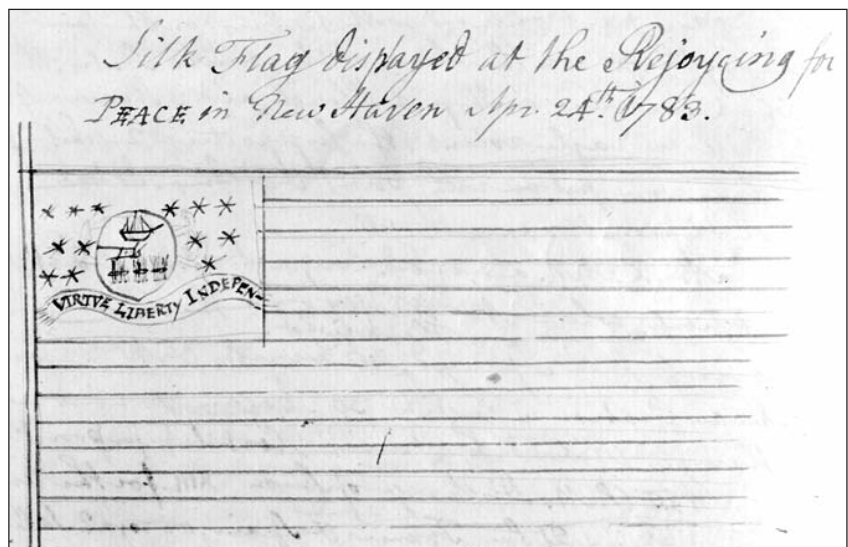 Silk Flag displayed at the Rejoycing for
PEACE in New Haven Apr. 24th. 1783.
VIRTVE LIBERTY INDEPEN-